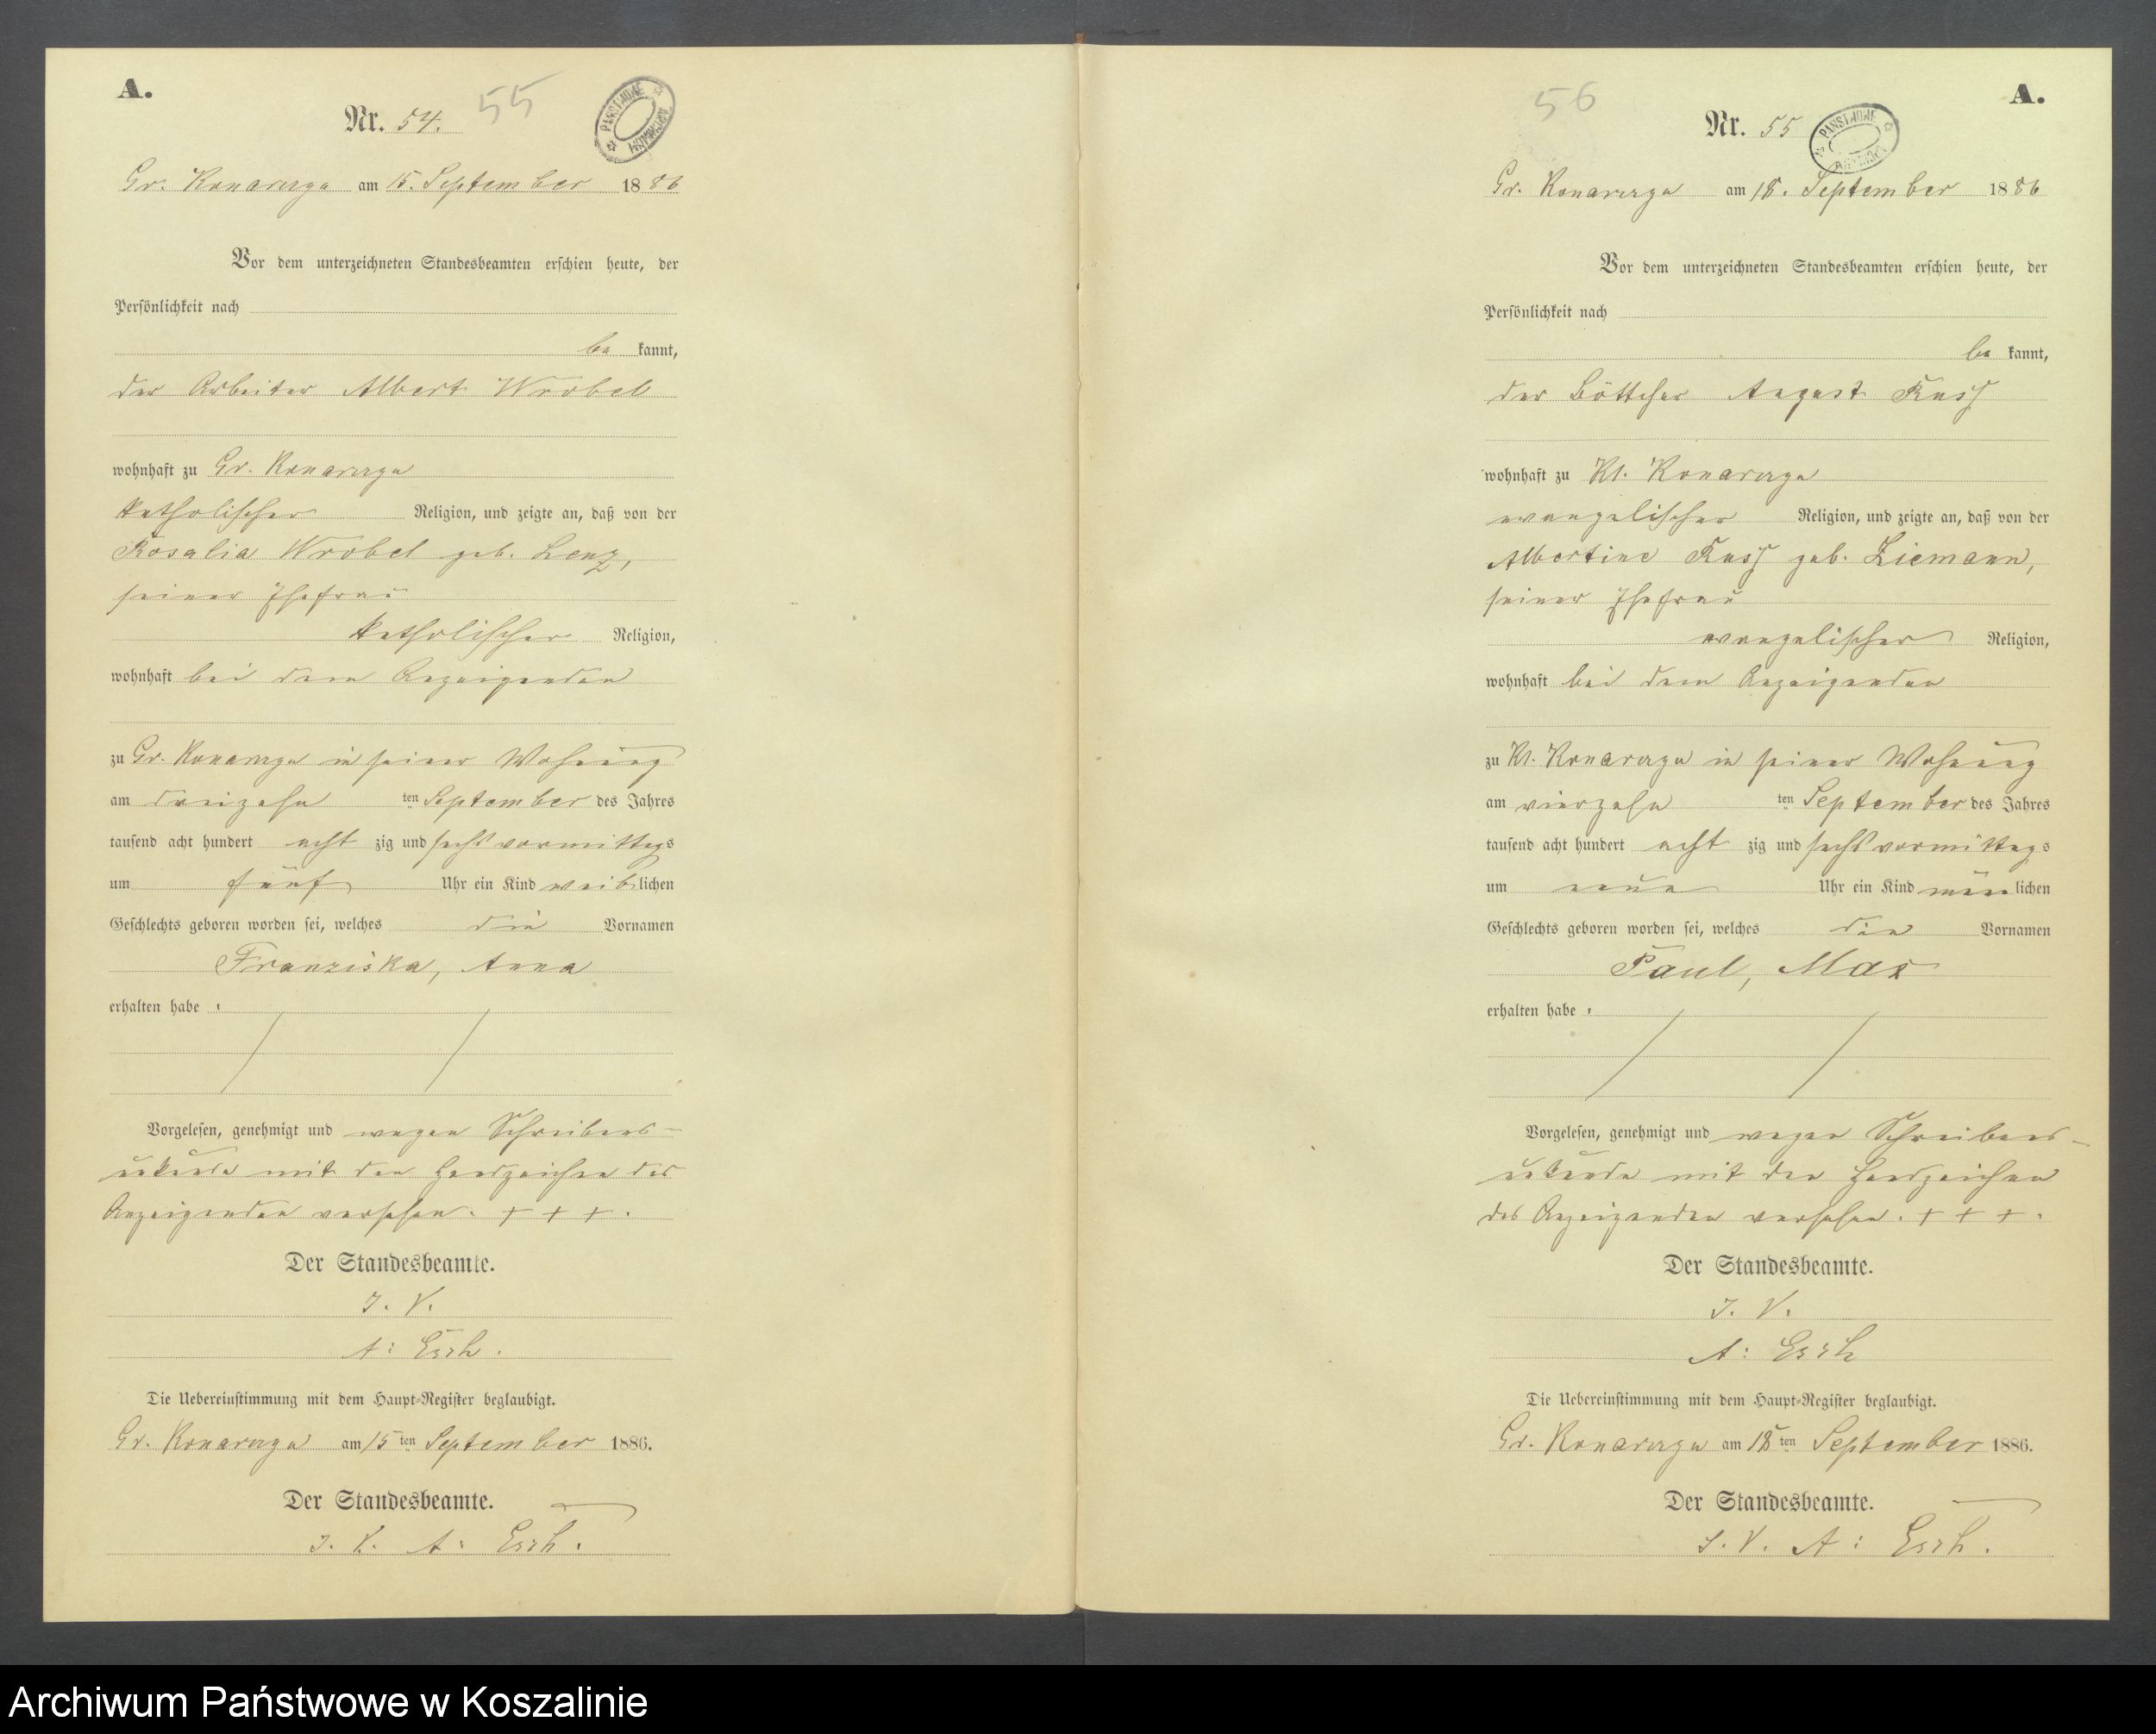 A.
Nr. 54.
55
PAŃSTWOWE ARCHIWUM
Gr. Konarczyn am 15. September 1886
Vor dem unterzeichneten Standesbeamten erschien heute, der
Persönlichkeit nach
be kannt,
der Arbeiter Albert Wrobel
wohnhaft zu Gr. Konarczyn
katholischer Religion, und zeigte an, daß von der
Rosalia Wrobel geb. Lenz,
seiner Ehefrau
katholischer Religion,
wohnhaft bei dem Anzeigenden
zu Gr. Konarczyn in seiner Wohnung
am dreizehn ten September des Jahres
tausend acht hundert acht zig und sechs vormittags
um fünf Uhr ein Kind weib lichen
Geschlechts geboren worden sei, welches die Vornamen
Franziska, Anna
erhalten habe.
Vorgelesen, genehmigt und wegen Schreibens-
unkunde mit den Handzeichen des
Anzeigenden versehen. + + +.
Der Standesbeamte.
J. V.
A: Esch.
Die Uebereinstimmung mit dem Haupt-Register beglaubigt.
Gr. Konarczyn am 15 ten September 1886.
Der Standesbeamte.
J. V. A: Esch.
56
A.
Nr. 55
PAŃSTWOWE ARCHIWUM
Gr. Konarczyn am 18. September 1886
Vor dem unterzeichneten Standesbeamten erschien heute, der
Persönlichkeit nach
be kannt,
der Böttcher August Russ
wohnhaft zu Kl. Konarczyn
evangelischer Religion, und zeigte an, daß von der
Albertine Russ geb. Ziemann,
seiner Ehefrau
evangelischer Religion,
wohnhaft bei dem Anzeigenden
zu Kl. Konarczyn in seiner Wohnung
am vierzehn ten September des Jahres
tausend acht hundert acht zig und sechs vormittags
um neun Uhr ein Kind män lichen
Geschlechts geboren worden sei, welches die Vornamen
Paul, Max
erhalten habe.
Vorgelesen, genehmigt und wegen Schreibens-
unkunde mit den Handzeichen
des Anzeigenden versehen. + + +.
Der Standesbeamte.
J. V.
A: Esch
Die Uebereinstimmung mit dem Haupt-Register beglaubigt.
Gr. Konarczyn am 18 ten September 1886.
Der Standesbeamte.
J. V. A: Esch.
Archiwum Państwowe w Koszalinie